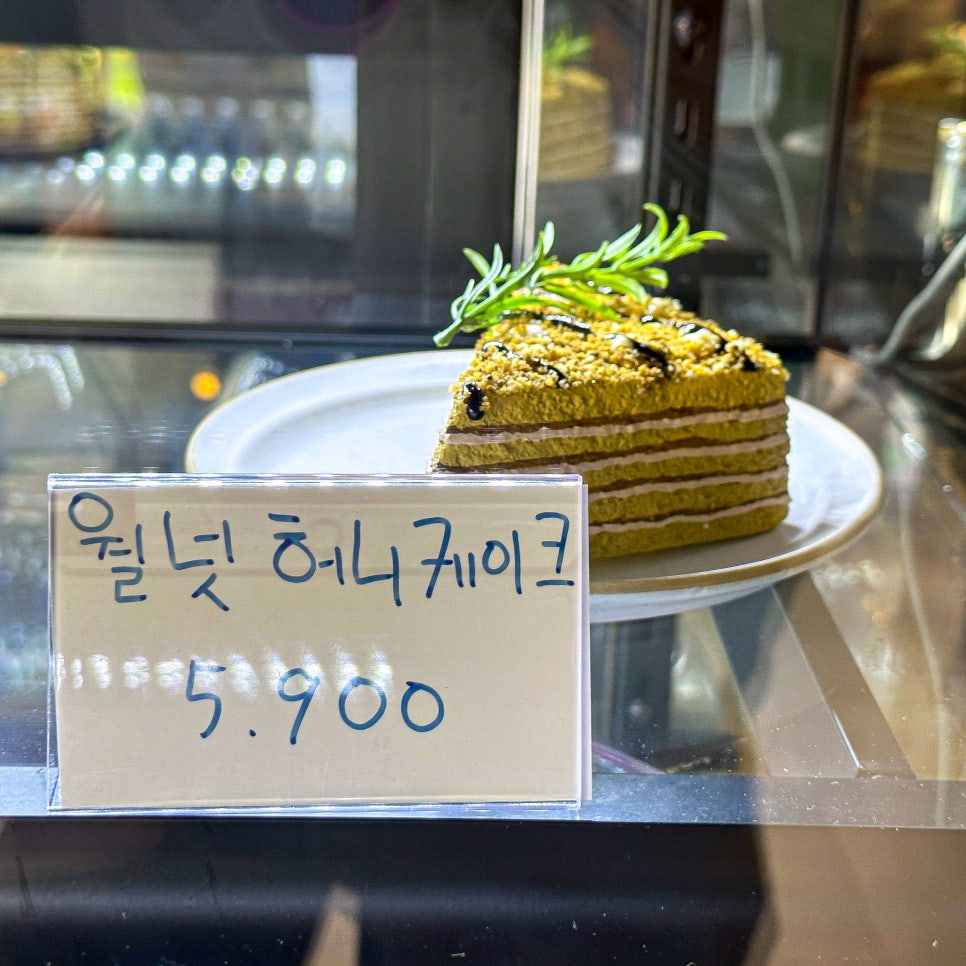 월넛 허니케이크
5.900